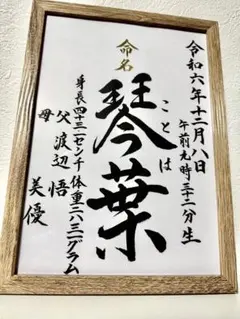 令和六年十二月八日
午前九時三十二分生
命名
琴葉
ことは
身長四十三一センチ体重二八三一グラム
父 渡辺 悟
母 美優